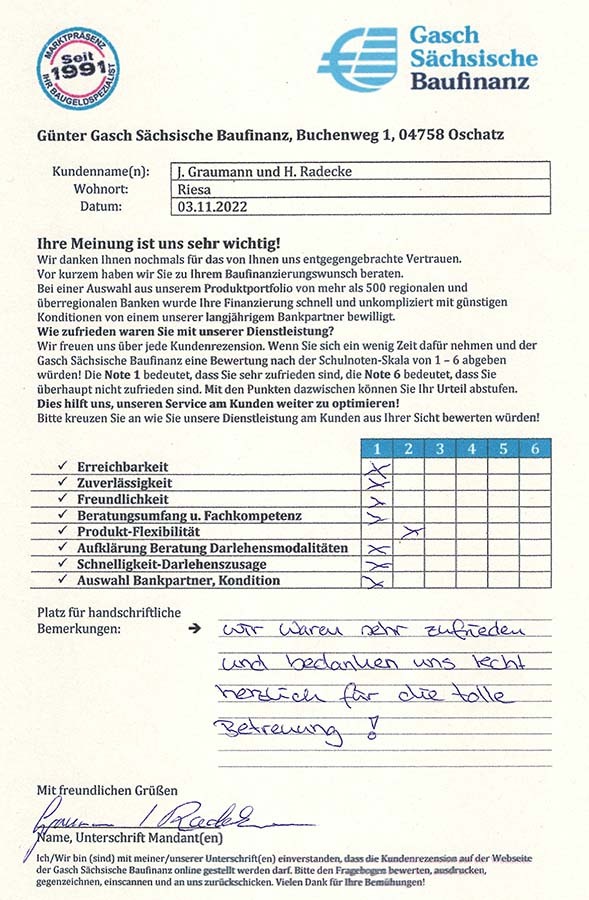 MARKTPRÄSENZ
Seit
1991
IHR BAUGELDSPEZIALIST
Gasch
Sächsische
Baufinanz
Günter Gasch Sächsische Baufinanz, Buchenweg 1, 04758 Oschatz
Kundenname(n): J. Graumann und H. Radecke
Wohnort: Riesa
Datum: 03.11.2022
Ihre Meinung ist uns sehr wichtig!
Wir danken Ihnen nochmals für das von Ihnen uns entgegengebrachte Vertrauen.
Vor kurzem haben wir Sie zu Ihrem Baufinanzierungswunsch beraten.
Bei einer Auswahl aus unserem Produktportfolio von mehr als 500 regionalen und
überregionalen Banken wurde Ihre Finanzierung schnell und unkompliziert mit günstigen
Konditionen von einem unserer langjährigem Bankpartner bewilligt.
Wie zufrieden waren Sie mit unserer Dienstleistung?
Wir freuen uns über jede Kundenrezension. Wenn Sie sich ein wenig Zeit dafür nehmen und der
Gasch Sächsische Baufinanz eine Bewertung nach der Schulnoten-Skala von 1 – 6 abgeben
würden! Die Note 1 bedeutet, dass Sie sehr zufrieden sind, die Note 6 bedeutet, dass Sie
überhaupt nicht zufrieden sind. Mit den Punkten dazwischen können Sie Ihr Urteil abstufen.
Dies hilft uns, unseren Service am Kunden weiter zu optimieren!
Bitte kreuzen Sie an wie Sie unsere Dienstleistung am Kunden aus Ihrer Sicht bewerten würden!
1 2 3 4 5 6
✓ Erreichbarkeit
✓ Zuverlässigkeit
✓ Freundlichkeit
✓ Beratungsumfang u. Fachkompetenz
✓ Produkt-Flexibilität
✓ Aufklärung Beratung Darlehensmodalitäten
✓ Schnelligkeit-Darlehenszusage
✓ Auswahl Bankpartner, Kondition
Platz für handschriftliche
Bemerkungen: ➔ wir waren sehr zufrieden
und bedanken uns recht
herzlich für die tolle
Betreuung !
Mit freundlichen Grüßen
Name, Unterschrift Mandant(en)
Ich/Wir bin (sind) mit meiner/unserer Unterschrift(en) einverstanden, dass die Kundenrezension auf der Webseite
der Gasch Sächsische Baufinanz online gestellt werden darf. Bitte den Fragebogen bewerten, ausdrucken,
gegenzeichnen, einscannen und an uns zurückschicken. Vielen Dank für Ihre Bemühungen!